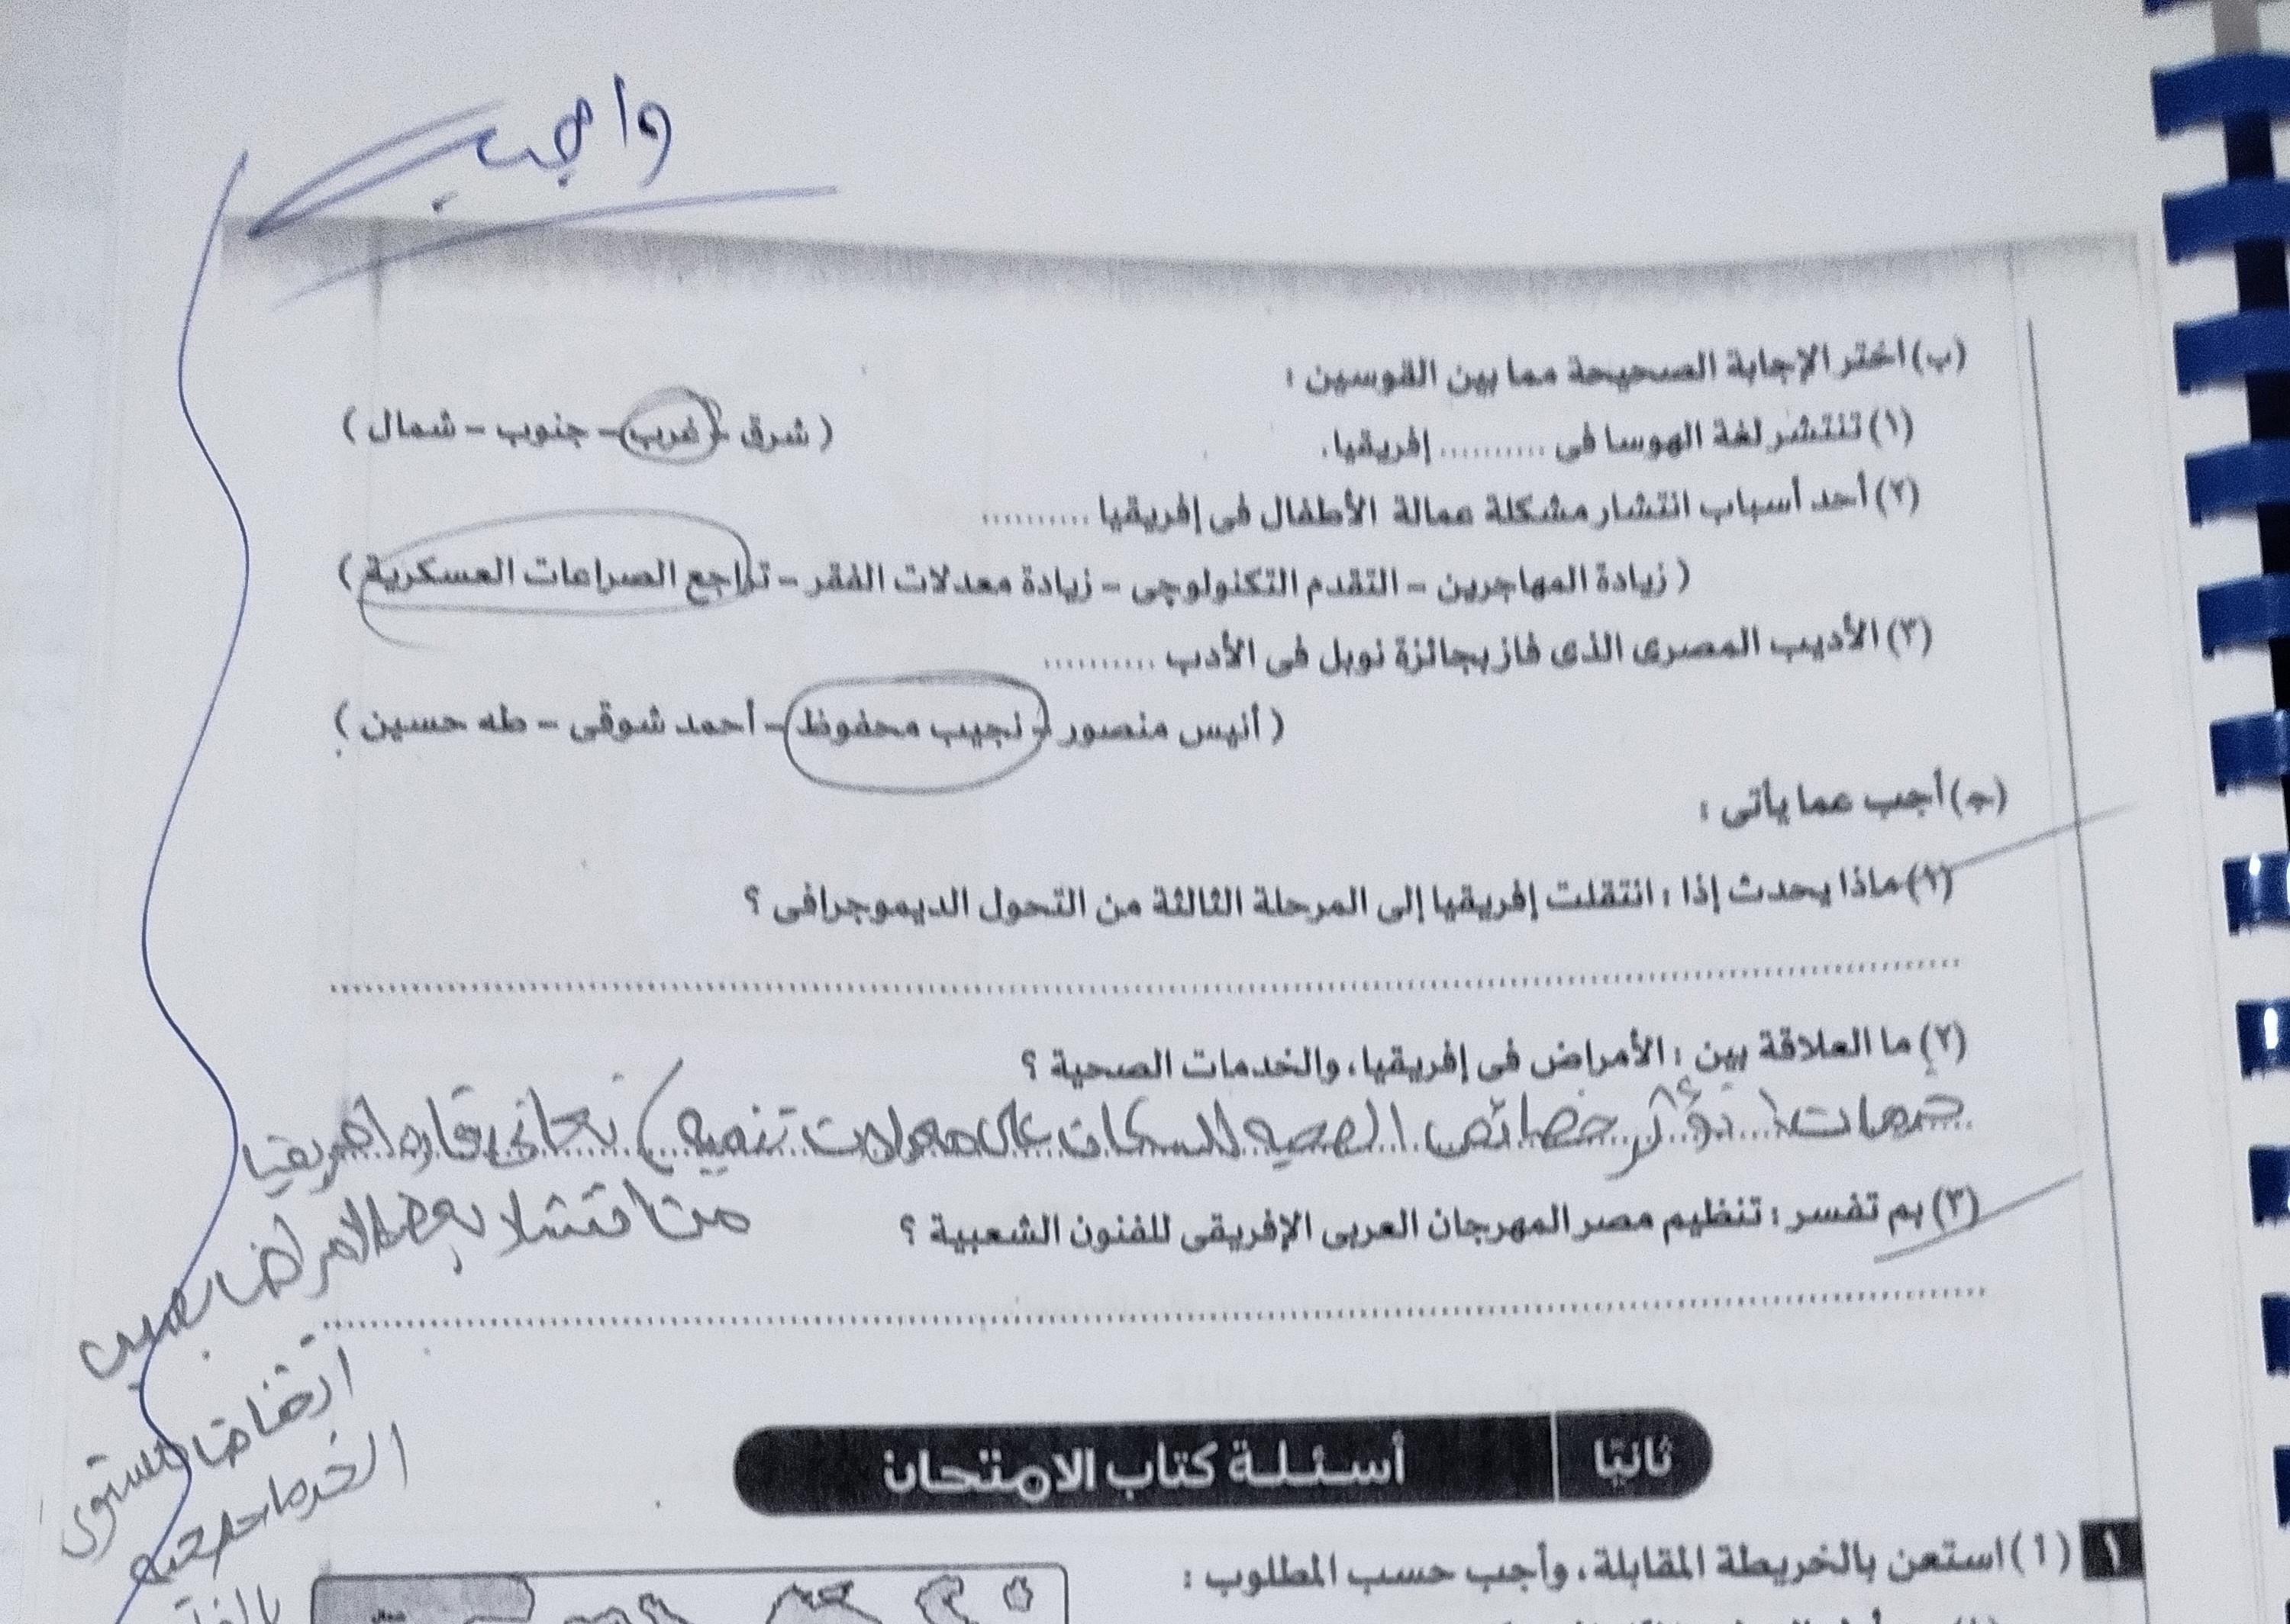 واجب
(ب) اختر الإجابة الصحيحة مما بين القوسين :
(١) تنتشر لغة الهوسا فى .......... إفريقيا. ( شرق - غرب - جنوب - شمال )
(٢) أحد أسباب انتشار مشكلة عمالة الأطفال فى إفريقيا ..........
( زيادة المهاجرين - التقدم التكنولوجى - زيادة معدلات الفقر - تراجع الصراعات العسكرية )
(٣) الأديب المصرى الذى فاز بجائزة نوبل فى الأدب ..........
( أنيس منصور - نجيب محفوظ - أحمد شوقى - طه حسين )
(جـ) أجب عما يأتى :
(١) ماذا يحدث إذا : انتقلت إفريقيا إلى المرحلة الثالثة من التحول الديموجرافى ؟
(٢) ما العلاقة بين : الأمراض فى إفريقيا، والخدمات الصحية ؟
تؤثر خصائص الصحيه للسكان على معدلات تنميه تعانى قاره افريقيا
من انتشار بعض الامراض بسبب
(٣) بم تفسر : تنظيم مصر المهرجان العربى الإفريقى للفنون الشعبية ؟
انخفاض مستوى
ثانيًا أسئلة كتاب الامتحان
١ (أ) استعن بالخريطة المقابلة، وأجب حسب المطلوب :